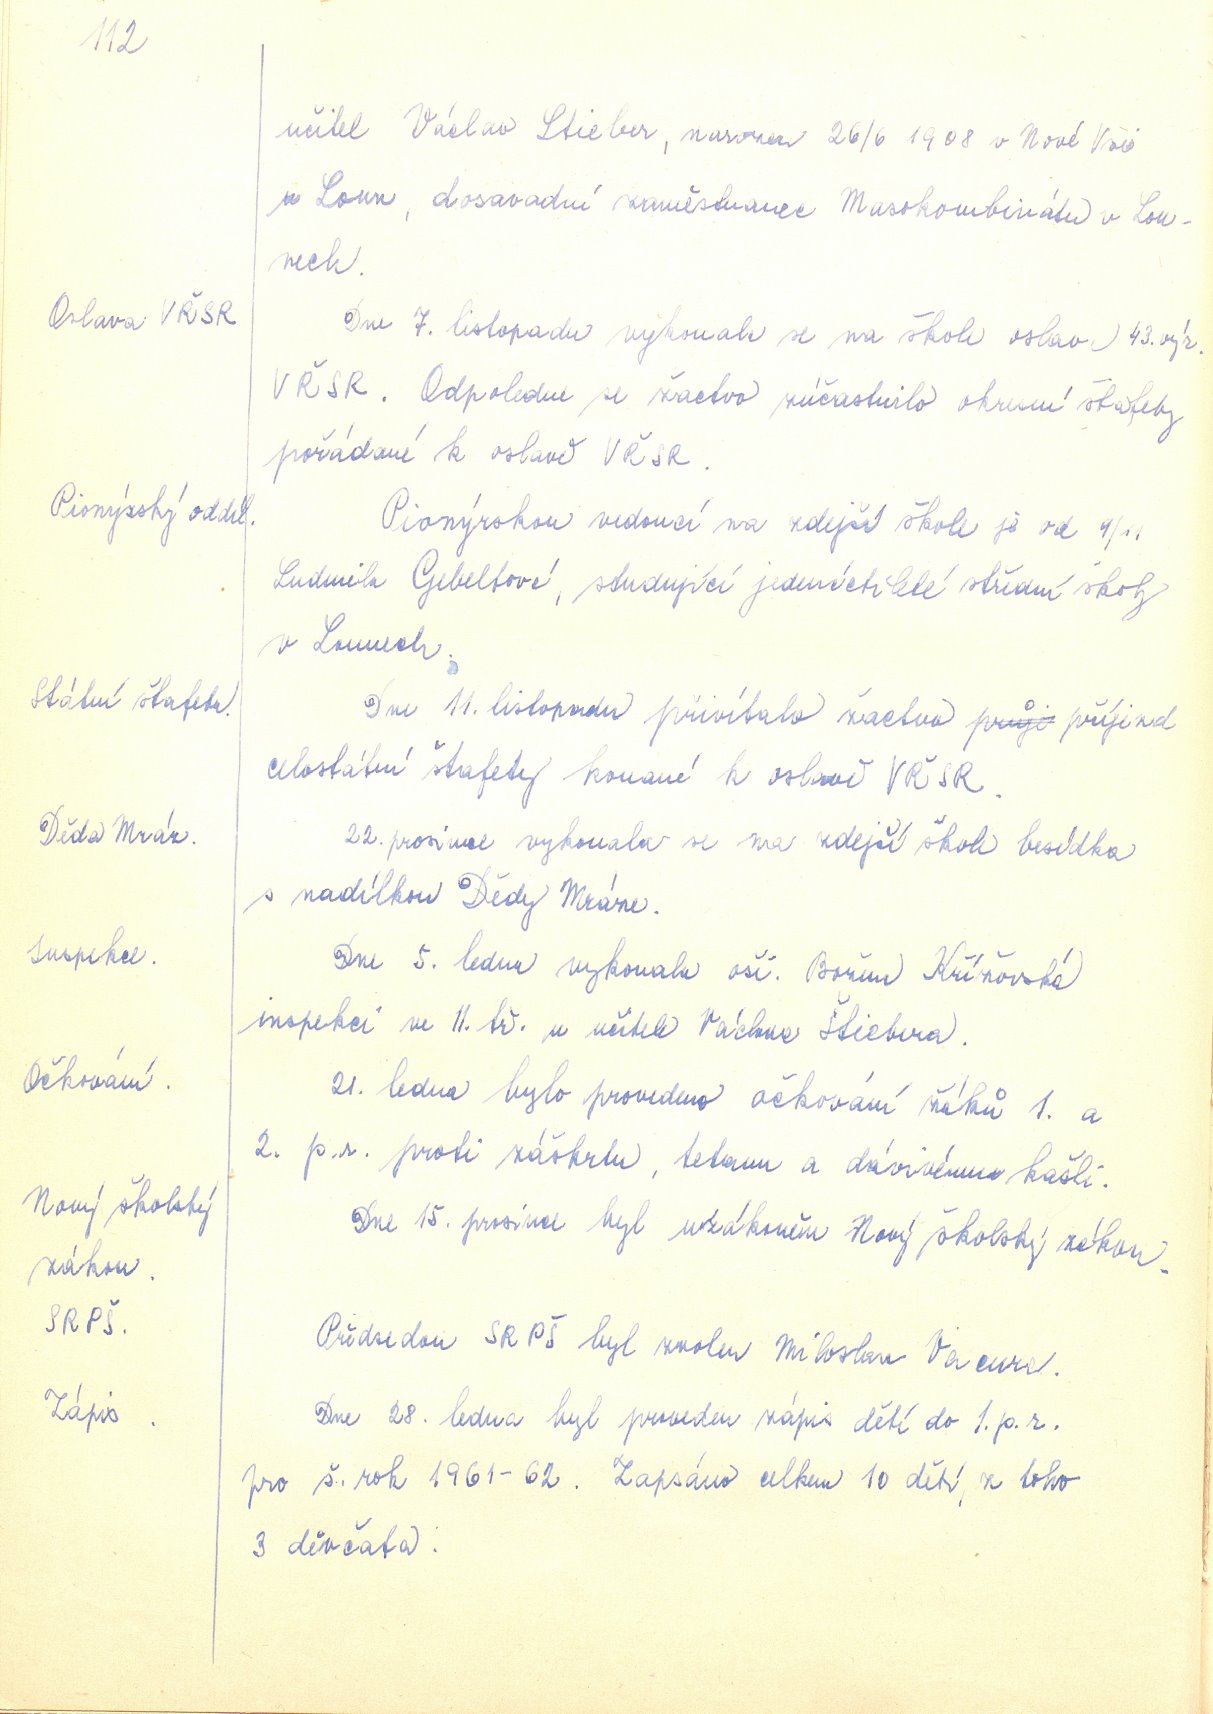 112
učitel Václav Stieber, narozen 26/6 1908 v Nové Vsi
u Loun, dosavadní zaměstnanec Masokombinátu v Lou-
nech.
Oslava VŘSR
Dne 7. listopadu vykonala se na škole oslava 43. výr.
VŘSR. Odpoledne se žactvo zúčastnilo okresní štafety
pořádané k oslavě VŘSR.
Pionýrský oddíl.
Pionýrskou vedoucí na zdejší škole je od 9/11
Ludmila Gebeltová, studující jedenáctileté střední školy
v Lounech.
Státní štafeta.
Dne 11. listopadu přivítalo žactvo průji příjezd
celostátní štafety konané k oslavě VŘSR.
Děda Mráz.
22. prosince vykonala se na zdejší škole besídka
s nadílkou Dědy Mráze.
Inspekce.
Dne 5. ledna vykonala oši. Božena Křížovská
inspekci ve II. tř. u učitele Václava Štiebera.
Očkování.
21. ledna bylo provedeno očkování žáků 1. a
2. p.r. proti záškrtu, tetanu a dávivému kašli.
Nový školský
zákon.
Dne 15. prosince byl uzákoněn Nový školský zákon.
SRPŠ.
Předsedou SRPŠ byl zvolen Miloslav Vacura.
Zápis.
Dne 28. ledna byl proveden zápis dětí do 1. p. r.
pro š. rok 1961-62. Zapsáno celkem 10 dětí, z toho
3 děvčata.